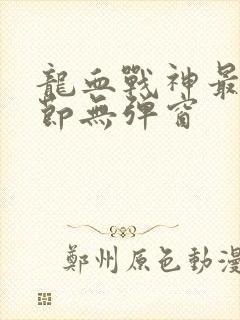 龍血戰神最
節無彈窗
鄭州原色動漫